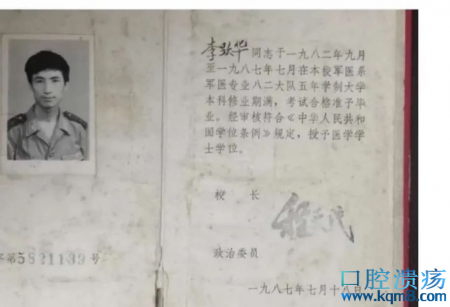 李跃华同志于一九八二年九月
至一九八七年七月在本校军医系
军医专业八二大队五年学制大学
本科修业期满，考试合格准予毕
业。经审核符合《中华人民共和
国学位条例》规定，授予医学学
士学位。
校 长
程天民
政治委员
字第5821139号
一九八七年七月十八日
口腔溃疡
www.kqm8.com